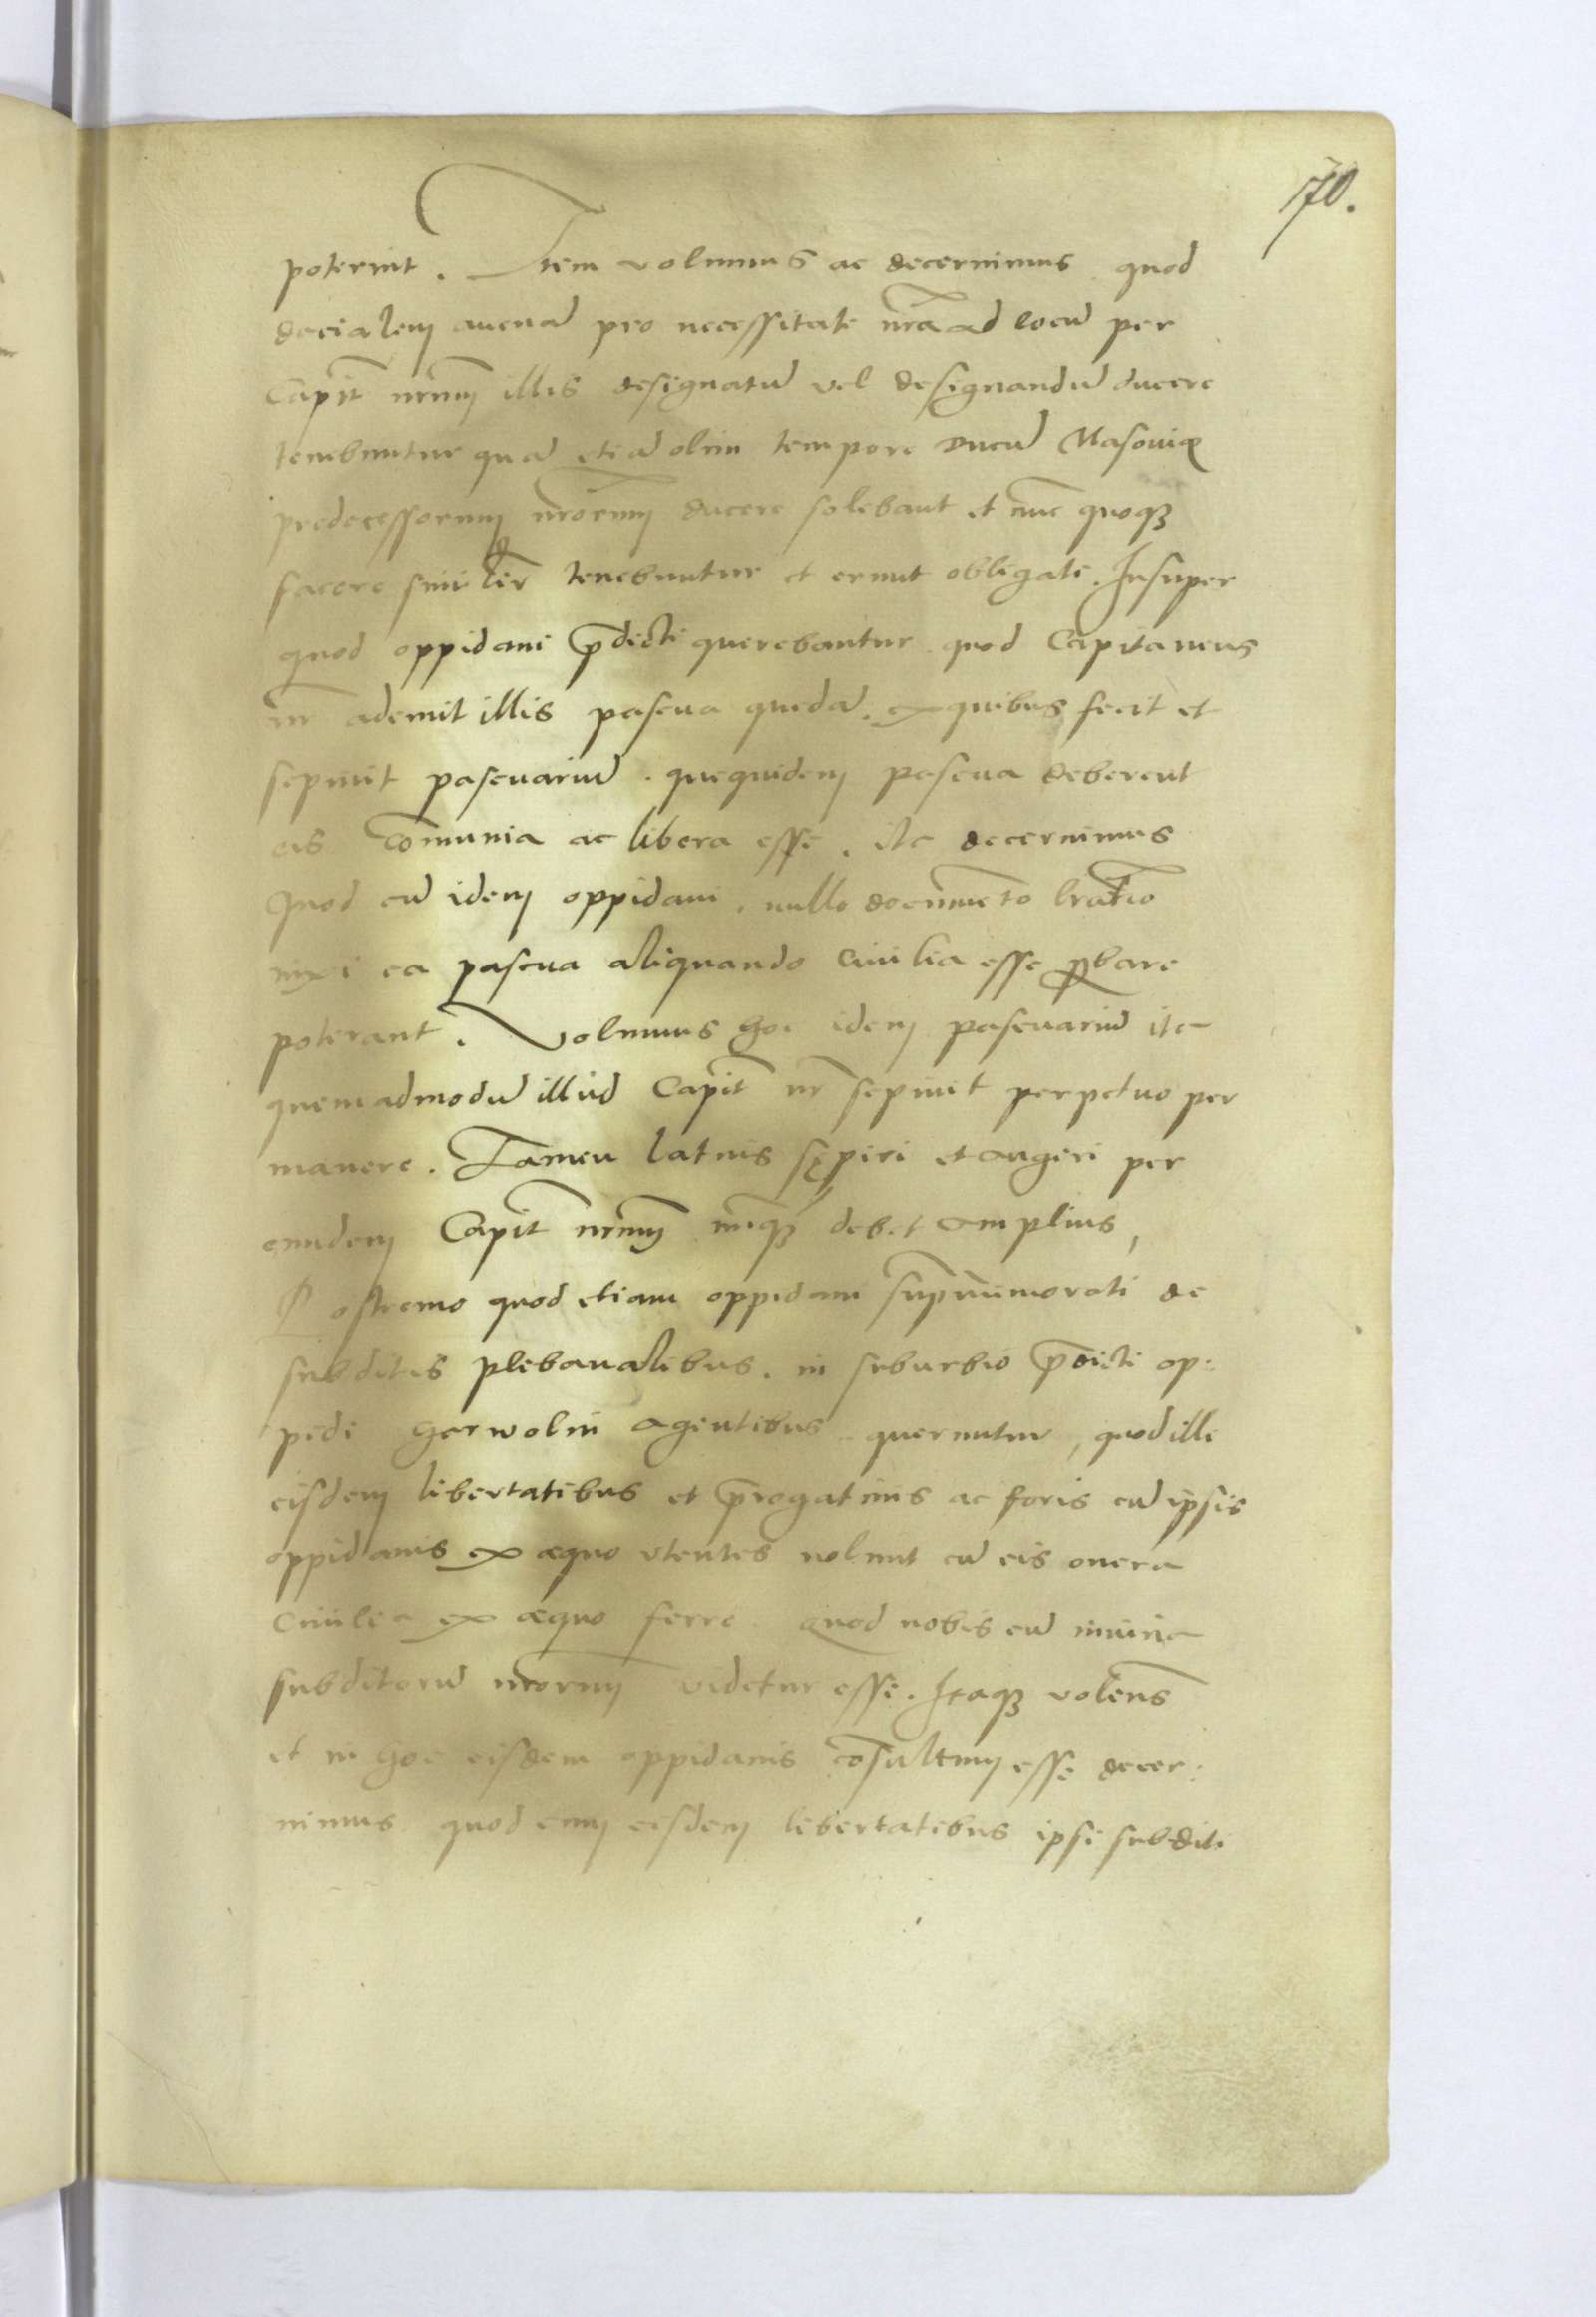 170.
poterint. Item volumus ac decernimus quod
dacialem avenā pro necessitate nrā ad locū per
Capit nrum illis designatū vel designandū ducere
tenebuntur quā etiā olim tempore Ducū Masoviæ
predecessorum nrorum ducere solebant et nunc quoqȝ
facere similr tenebuntur et erunt obligati. Insuper
quod oppidani p̄dicti querebantur quod Capitaneus
nr ademit illis pascua quedā ex quibus fecit et
sepivit pascuariū. quequidem pascua deberent
eis com̄unia ac libera esse. ita decernimus
Quod cū idem oppidani, nullo documento lratio
nixi ea pascua aliquando civilia esse ꝓbare
poterant. Volumus hoc idem pascuariū ita
quemadmodū illud Capit nr sepivit perpetuo per
manere. Tamen latius sępiri et augeri per
eundem Capit nrum nunqȝ debet amplius,
Postremo quod etiam oppidani supranumerati de
subditis plebanalibus. in suburbio p̄dicti op:
pidi Garwolin agentibus queruntur, quod illi
eisdem libertatibus et p̄rogativis ac foris cū ipsis
oppidanis ex æquo utentes nolunt cū eis onera
civilia ex æquo ferre. Quod nobis cū iniuria
subditorū nrorum videtur esse. Itaqȝ volens̄
et in hoc eisdem oppidanis cōsultum esse decer:
nimus quod cum eisdem libertatibus ipsi subditi